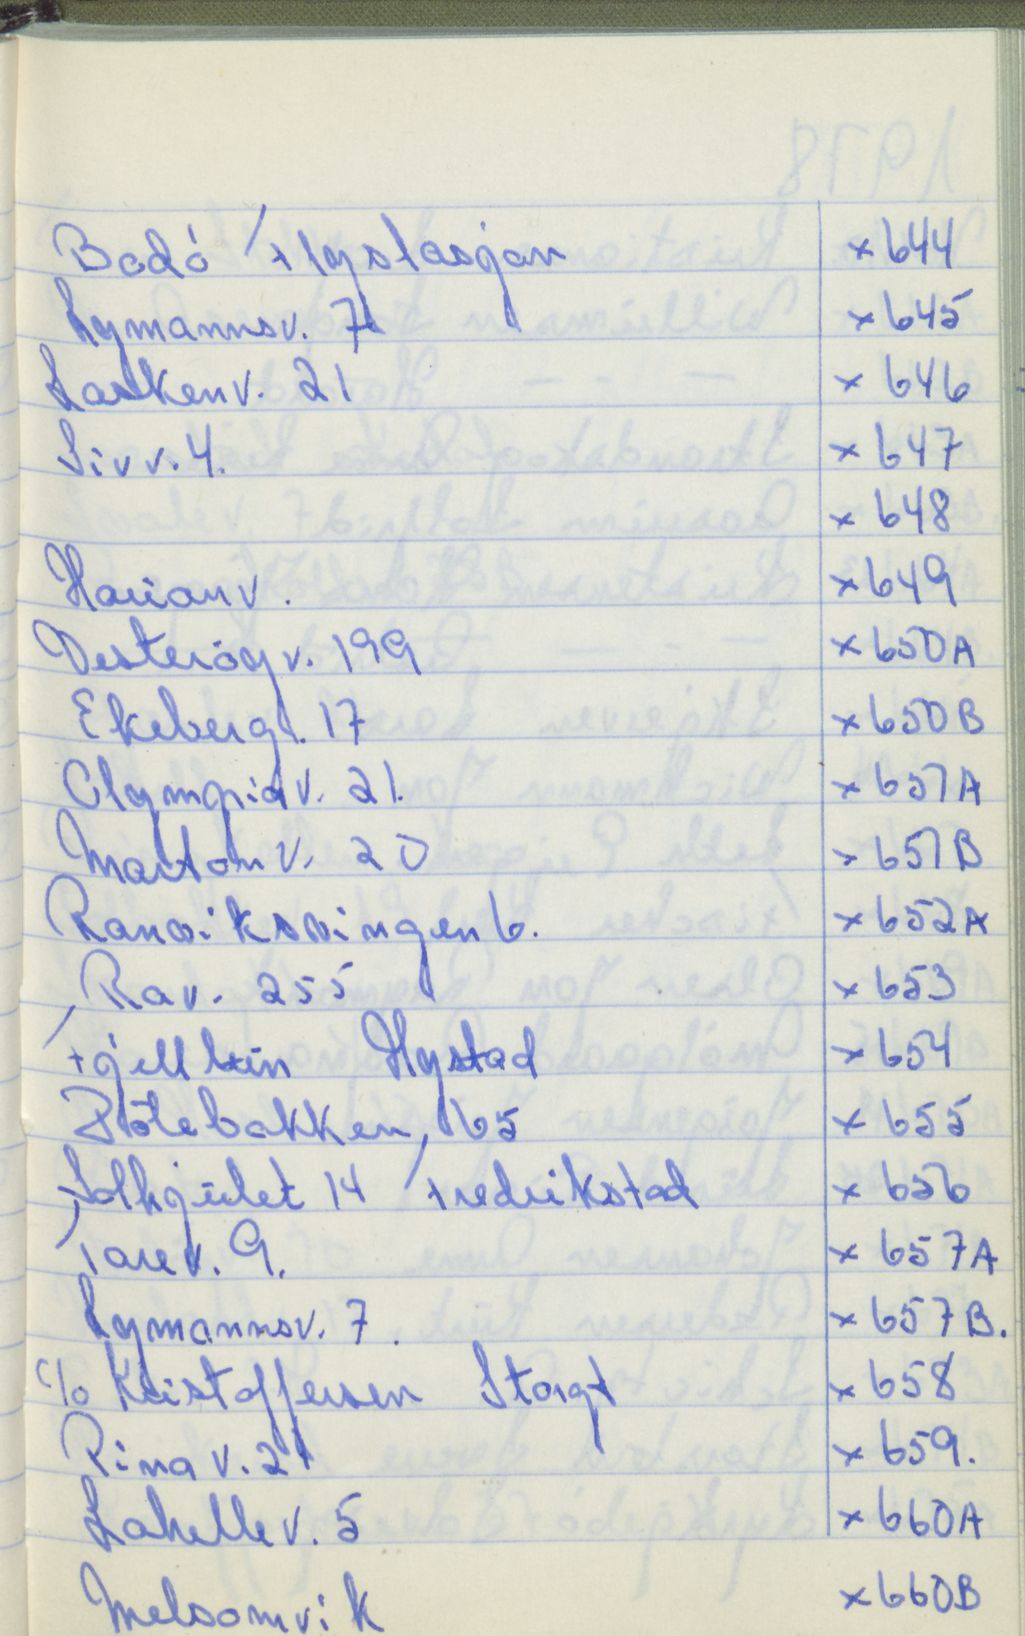 Bodö Flystasjon x 644
Lymannsv. 7 x 645
Laskenv. 21 x 646
Siv v. 4. x 647
x 648
Havianv. x 649
Vesteröyv. 199 x 650A
Ekebergv. 17 x 650B
Olympiav. 21. x 651A
Martomv. 20 x 651B
Ranviksvingen 6. x 652A
Rav. 255 x 653
Fjellvein Nystad x 654
Bötebakken, 165 x 655
Solhgulet 14 Fredrikstad x 656
Tarev. 9. x 657A
Lymannsv. 7. x 657B.
c/o Kristoffersen Storgt x 658
Rinav. 21 x 659.
Lakellev. 5 x 660A
Melsomvik x 660B